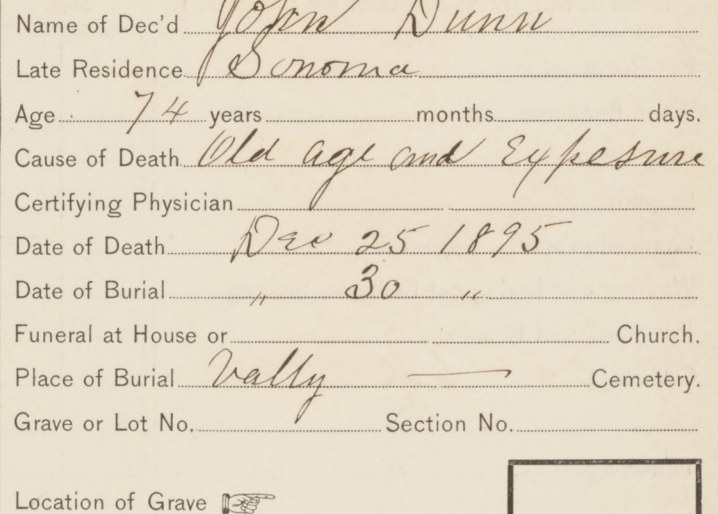 Name of Dec'd John Dunn
Late Residence Sonoma
Age 74 years months days.
Cause of Death Old age and Exposure
Certifying Physician
Date of Death Dec 25 1895
Date of Burial " 30 "
Funeral at House or Church.
Place of Burial Vally — Cemetery.
Grave or Lot No. Section No.
Location of Grave